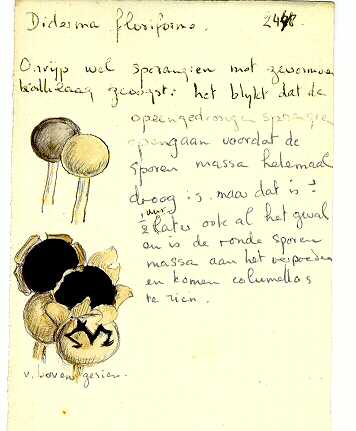 Diderma floriforme. 2497
Onrijp wel sporangien met gevormde
kalklaag gezoogst: het blykt dat de
opeengedrongen sporangien
opengaan voordat de
sporen massa helemaal
droog is. maar dat is ±
2 uur later ook al het geval
en is de ronde sporen
massa aan het verpoeden
en komen columellas
te zien.
v. boven gezien.